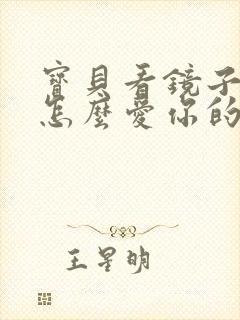 寶貝看鏡子
怎麼愛你的
王星明